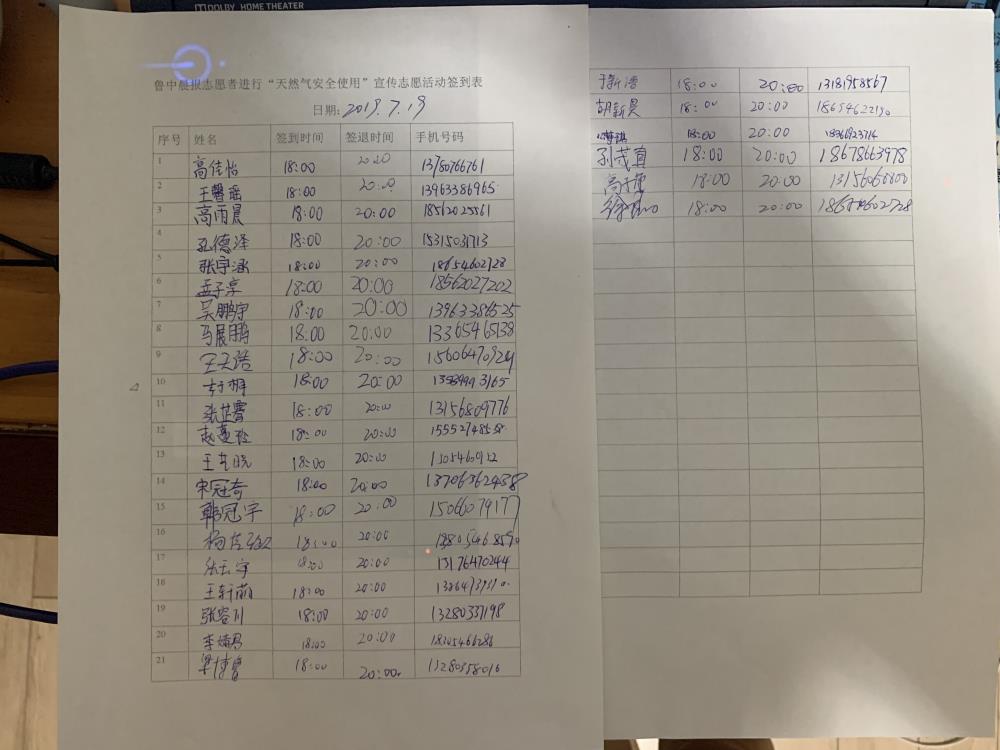 DOLBY HOME THEATER
鲁中晨报志愿者进行“天然气安全使用”宣传志愿活动签到表
日期: 2019.7.19
序号 姓名 签到时间 签退时间 手机号码
1 高佳怡 18:00 20:00 13780766761
2 王馨瑶 18:00 20:00 13963386965
3 高雨晨 18:00 20:00 18562025561
4 孔德泽 18:00 20:00 15315031713
5 张宇涵 18:00 20:00 18654602728
6 孟子淳 18:00 20:00 18562027202
7 吴鹏宇 18:00 20:00 13963386525
8 马展鹏 18:00 20:00 13365465138
9 王天浩 18:00 20:00 15606470924
10 18:00 20:00
11 张芷睿 18:00 20:00 13156809776
12 赵蔓 18:00 20:00
13 王艺晓 18:00 20:00
14 宋冠奇 18:00 20:00 13706362438
15 韩冠宇 18:00 20:00
16 18:00 20:00
17 张云宇 18:00 20:00 13176470244
18 王轩萌 18:00 20:00
19 张容川 18:00 20:00 13280337198
20 李 18:00 20:00
21 18:00 20:00 13280358016
于新浩 18:00 20:00 13181958567
胡新昊 18:00 20:00 18654622190
18:00 20:00
孙茂真 18:00 20:00 18678663978
18:00 20:00 13156060800
18:00 20:00